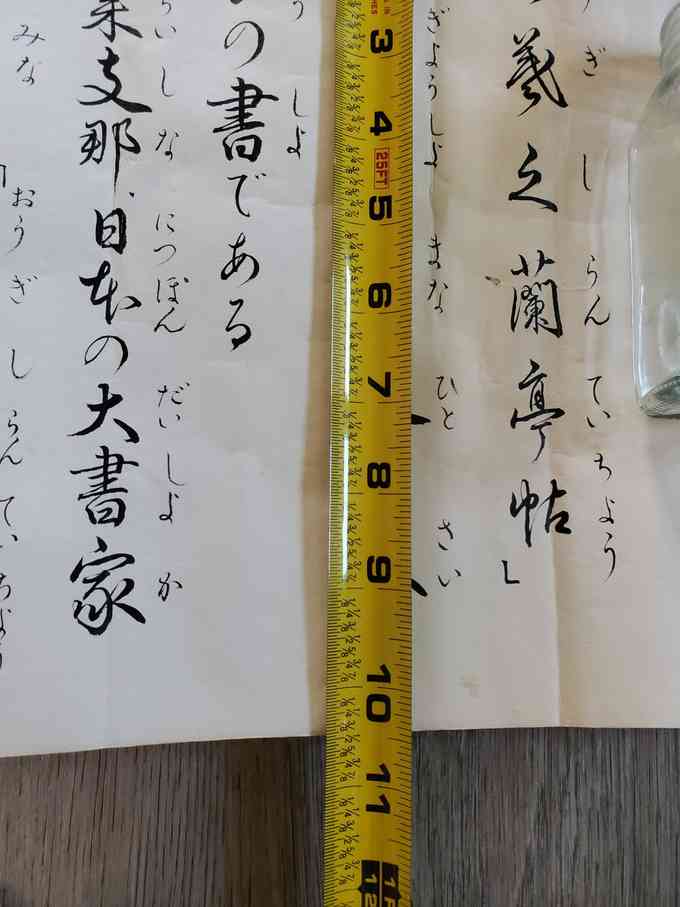 ぎ し らん てい ちよう
羲之蘭亭帖」
ぎようしよ まな ひと さい
しよ
の書である
いしな につぽん だいしよ か
支那、日本の大書家
みな おうぎしらんていちよう
3
4
25FT
5
6
7
8
9
10
11
12